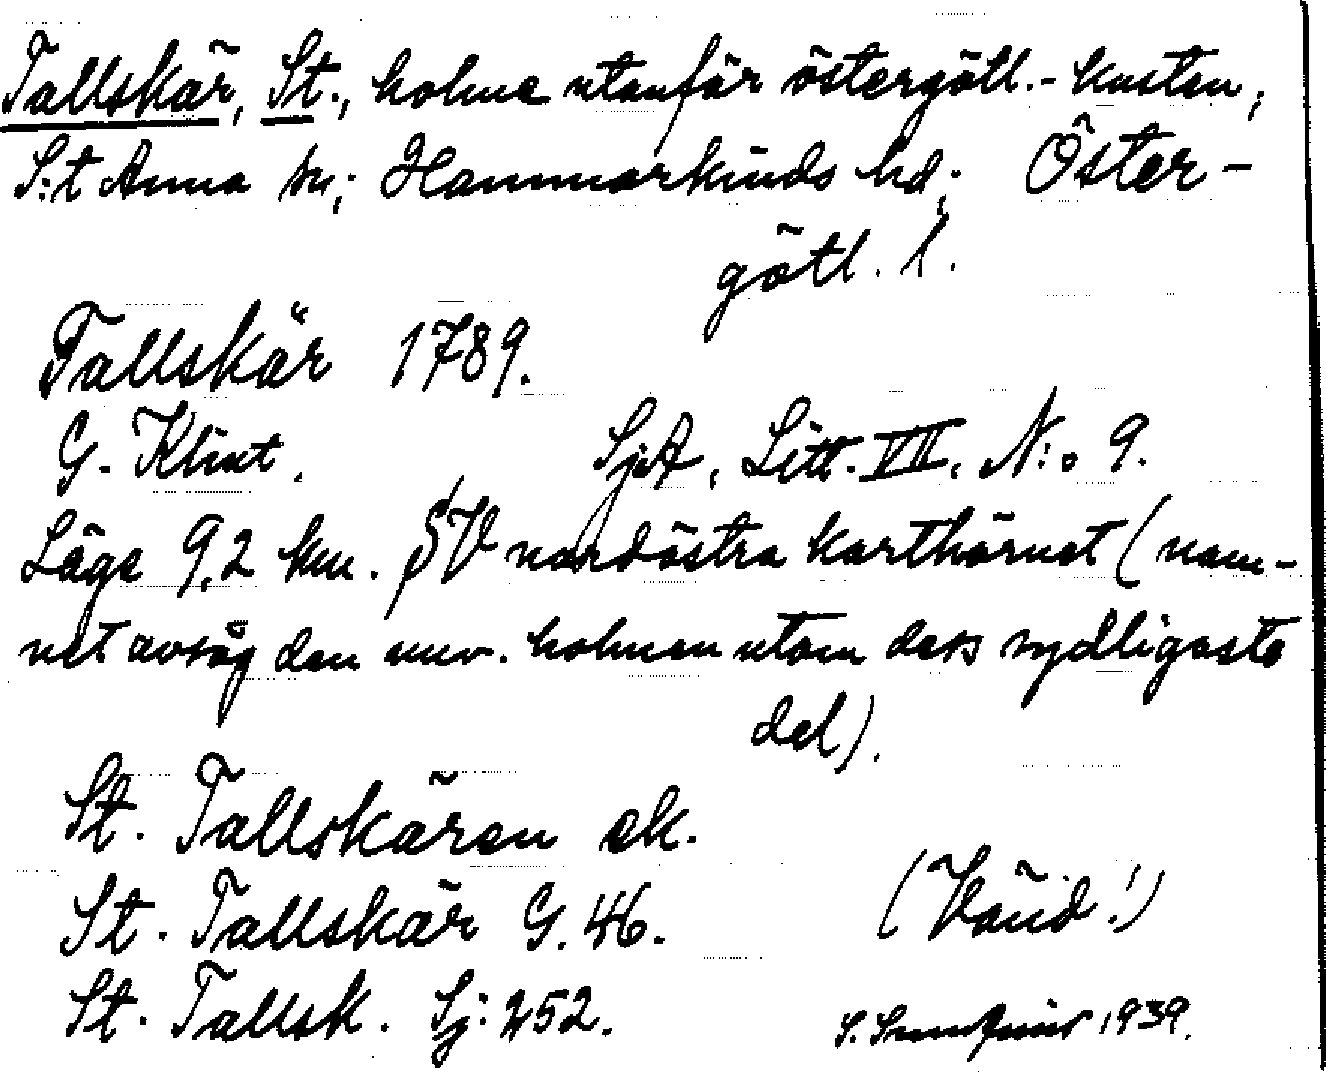 Tallskär, St., holme utanför östergötl.-kusten;
S:t Anna sn; Hammarkinds hd; Öster-
götl. l.
Tallskär 1789.
G. Klint. SjA, Litt. VII, N:o 9.
Läge 9,2 km. SV nordöstra karthörnet (nam-
net avsåg den nuv. holmen utom dess sydligaste
del).
St. Tallskären ek.
St. Tallskär G. 46.
(Vänd!)
St. Tallsk. Sj: 252.
S. 1939.